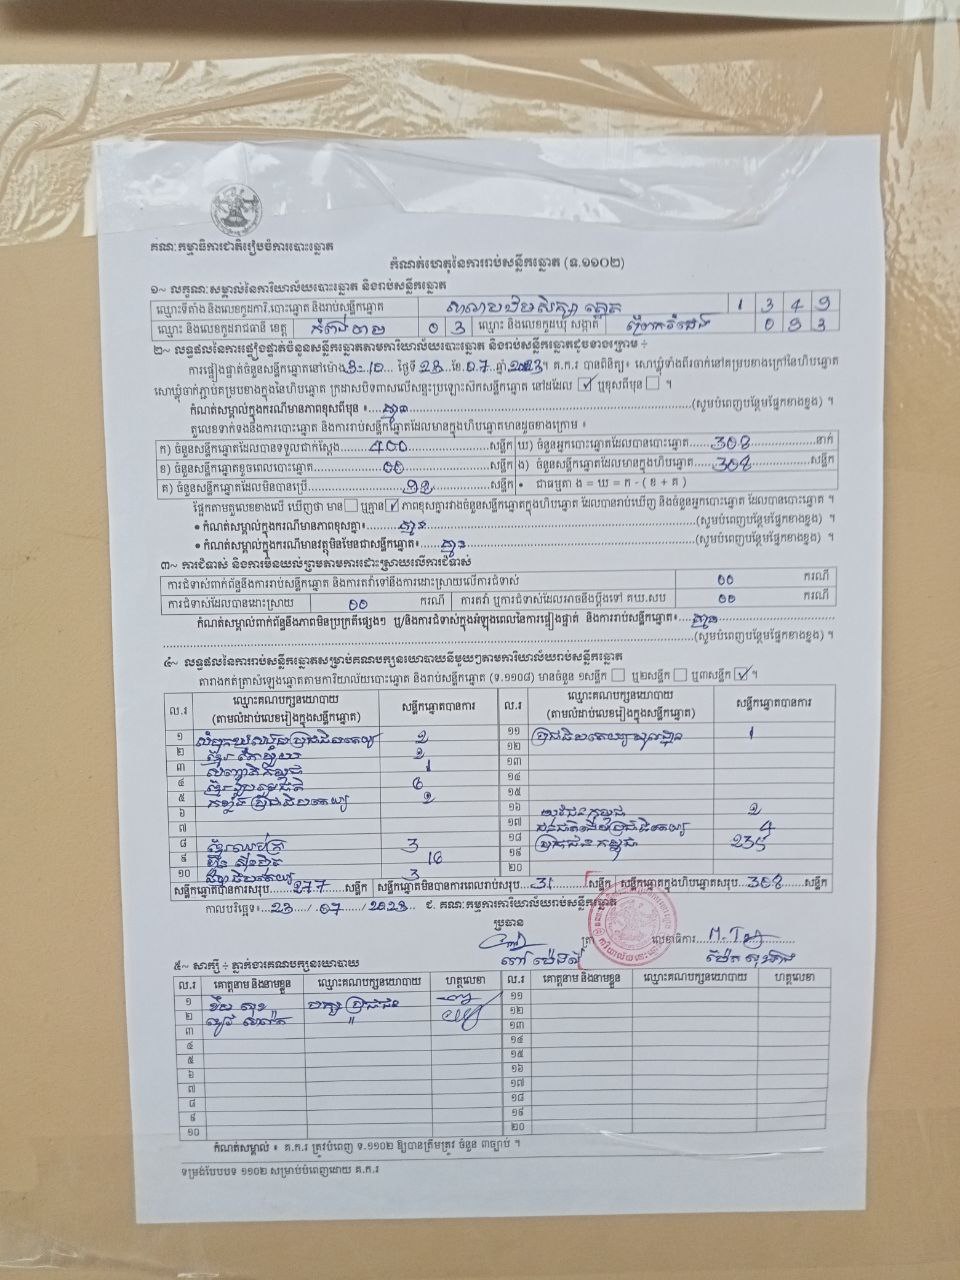 គណៈកម្មាធិការជាតិរៀបចំការបោះឆ្នោត
កំណត់ហេតុនៃការរាប់សន្លឹកឆ្នោត (ទ.១១០២)
១~ លក្ខណៈសម្គាល់នៃការិយាល័យបោះឆ្នោត និងរាប់សន្លឹកឆ្នោត
ឈ្មោះទីតាំង និងលេខកូដការិ.បោះឆ្នោត និងរាប់សន្លឹកឆ្នោត 1 3 4 9
ឈ្មោះ និងលេខកូដរាជធានី ខេត្ត កំពង់ចាម 0 3 ឈ្មោះ និងលេខកូដឃុំ សង្កាត់ 0 9 3
២~ លទ្ធផលនៃការផ្ទៀងផ្ទាត់ចំនួនសន្លឹកឆ្នោតតាមការិយាល័យបោះឆ្នោត និងរាប់សន្លឹកឆ្នោតដូចខាងក្រោម ÷
ការផ្ទៀងផ្ទាត់ចំនួនសន្លឹកឆ្នោតនៅម៉ោង 3:10 ថ្ងៃទី 23 ខែ 07 ឆ្នាំ 2023 ។ គ.ក.រ បានពិនិត្យ៖ សោឃ្លុំទាំងពីរចាក់នៅគម្របខាងក្រៅនៃហិបឆ្នោត
សោឃ្លុំចាក់ភ្ជាប់គម្របខាងក្នុងនៃហិបឆ្នោត ក្រដាសបិទពាសលើសន្ទះប្រឡោះស៊កសន្លឹកឆ្នោត នៅដដែល ☑ ឬខុសពីមុន ☐ ។
កំណត់សម្គាល់ក្នុងករណីមានភាពខុសពីមុន ៖ គ្មាន (សូមបំពេញបន្ថែមផ្នែកខាងខ្នង) ។
តួលេខទាក់ទងនឹងការបោះឆ្នោត និងការរាប់សន្លឹកឆ្នោតដែលមានក្នុងហិបឆ្នោតមានដូចខាងក្រោម ៖
ក) ចំនួនសន្លឹកឆ្នោតដែលបានទទួលជាក់ស្តែង 400 សន្លឹក ឃ) ចំនួនអ្នកបោះឆ្នោតដែលបានបោះឆ្នោត 308 នាក់
ខ) ចំនួនសន្លឹកឆ្នោតខូចពេលបោះឆ្នោត 00 សន្លឹក ង) ចំនួនសន្លឹកឆ្នោតដែលមានក្នុងហិបឆ្នោត 308 សន្លឹក
គ) ចំនួនសន្លឹកឆ្នោតដែលមិនបានប្រើ 92 សន្លឹក • ជាធម្មតា ង = ឃ = ក - ( ខ + គ )
ផ្អែកតាមតួលេខខាងលើ ឃើញថា មាន ☐ ឬគ្មាន ☑ ភាពខុសគ្នារវាងចំនួនសន្លឹកឆ្នោតក្នុងហិបឆ្នោត ដែលបានរាប់ឃើញ និងចំនួនអ្នកបោះឆ្នោត ដែលបានបោះឆ្នោត ។
• កំណត់សម្គាល់ក្នុងករណីមានភាពខុសគ្នា៖ គ្មាន (សូមបំពេញបន្ថែមផ្នែកខាងខ្នង) ។
• កំណត់សម្គាល់ក្នុងករណីមានវត្ថុមិនមែនជាសន្លឹកឆ្នោត៖ គ្មាន (សូមបំពេញបន្ថែមផ្នែកខាងខ្នង) ។
៣~ ការជំទាស់ និងការមិនយល់ព្រមតាមការដោះស្រាយលើការជំទាស់
ការជំទាស់ពាក់ព័ន្ធនឹងការរាប់សន្លឹកឆ្នោត និងការតវ៉ាទៅនឹងការដោះស្រាយលើការជំទាស់ 00 ករណី
ការជំទាស់ដែលបានដោះស្រាយ 00 ករណី ការតវ៉ា ឬការជំទាស់ដែលអាចនឹងប្តឹងទៅ គឃ.សប 00 ករណី
កំណត់សម្គាល់ពាក់ព័ន្ធនឹងភាពមិនប្រក្រតីផ្សេងៗ ឬ/និងការជំទាស់ក្នុងអំឡុងពេលនៃការផ្ទៀងផ្ទាត់ និងការរាប់សន្លឹកឆ្នោត៖ គ្មាន
(សូមបំពេញបន្ថែមផ្នែកខាងខ្នង) ។
៤~ លទ្ធផលនៃការរាប់សន្លឹកឆ្នោតសម្រាប់គណបក្សនយោបាយនីមួយៗតាមការិយាល័យរាប់សន្លឹកឆ្នោត
តារាងកត់ត្រាសំឡេងឆ្នោតតាមការិយាល័យបោះឆ្នោត និងរាប់សន្លឹកឆ្នោត (ទ.១១០៨) មានចំនួន ១សន្លឹក ☐ ឬ២សន្លឹក ☐ ឬ៣សន្លឹក ☑ ។
ល.រ ឈ្មោះគណបក្សនយោបាយ (តាមលំដាប់លេខរៀងក្នុងសន្លឹកឆ្នោត) សន្លឹកឆ្នោតបានការ ល.រ ឈ្មោះគណបក្សនយោបាយ (តាមលំដាប់លេខរៀងក្នុងសន្លឹកឆ្នោត) សន្លឹកឆ្នោតបានការ
១ 2 ១១ 1
២ 2 ១២
៣ 1 ១៣
៤ 6 ១៤
៥ 2 ១៥
៦ ១៦ យុវជនកម្ពុជា 2
៧ ១៧ 4
៨ ខ្មែរឈប់ក្រ 3 ១៨ ប្រជាជនកម្ពុជា 235
៩ ហ៊្វុនស៊ិនប៉ិច 16 ១៩
១០ 3 ២០
សន្លឹកឆ្នោតបានការសរុប 277 សន្លឹក សន្លឹកឆ្នោតមិនបានការពេលរាប់សរុប 31 សន្លឹក សន្លឹកឆ្នោតក្នុងហិបឆ្នោតសរុប 308 សន្លឹក
កាលបរិច្ឆេទ៖ 23 / 07 / 2023 ជ. គណៈកម្មការការិយាល័យរាប់សន្លឹកឆ្នោត
ប្រធាន
ត្រា លេខាធិការ
៥~ សាក្សី ÷ ភ្នាក់ងារគណបក្សនយោបាយ
ល.រ គោត្តនាម និងនាមខ្លួន ឈ្មោះគណបក្សនយោបាយ ហត្ថលេខា ល.រ គោត្តនាម និងនាមខ្លួន ឈ្មោះគណបក្សនយោបាយ ហត្ថលេខា
១ ១១
២ " ១២
៣ ១៣
៤ ១៤
៥ ១៥
៦ ១៦
៧ ១៧
៨ ១៨
៩ ១៩
១០ ២០
កំណត់សម្គាល់ ៖ គ.ក.រ ត្រូវបំពេញ ទ.១១០២ ឱ្យបានត្រឹមត្រូវ ចំនួន ៣ច្បាប់ ។
ទម្រង់បែបបទ ១១០២ សម្រាប់បំពេញដោយ គ.ក.រ